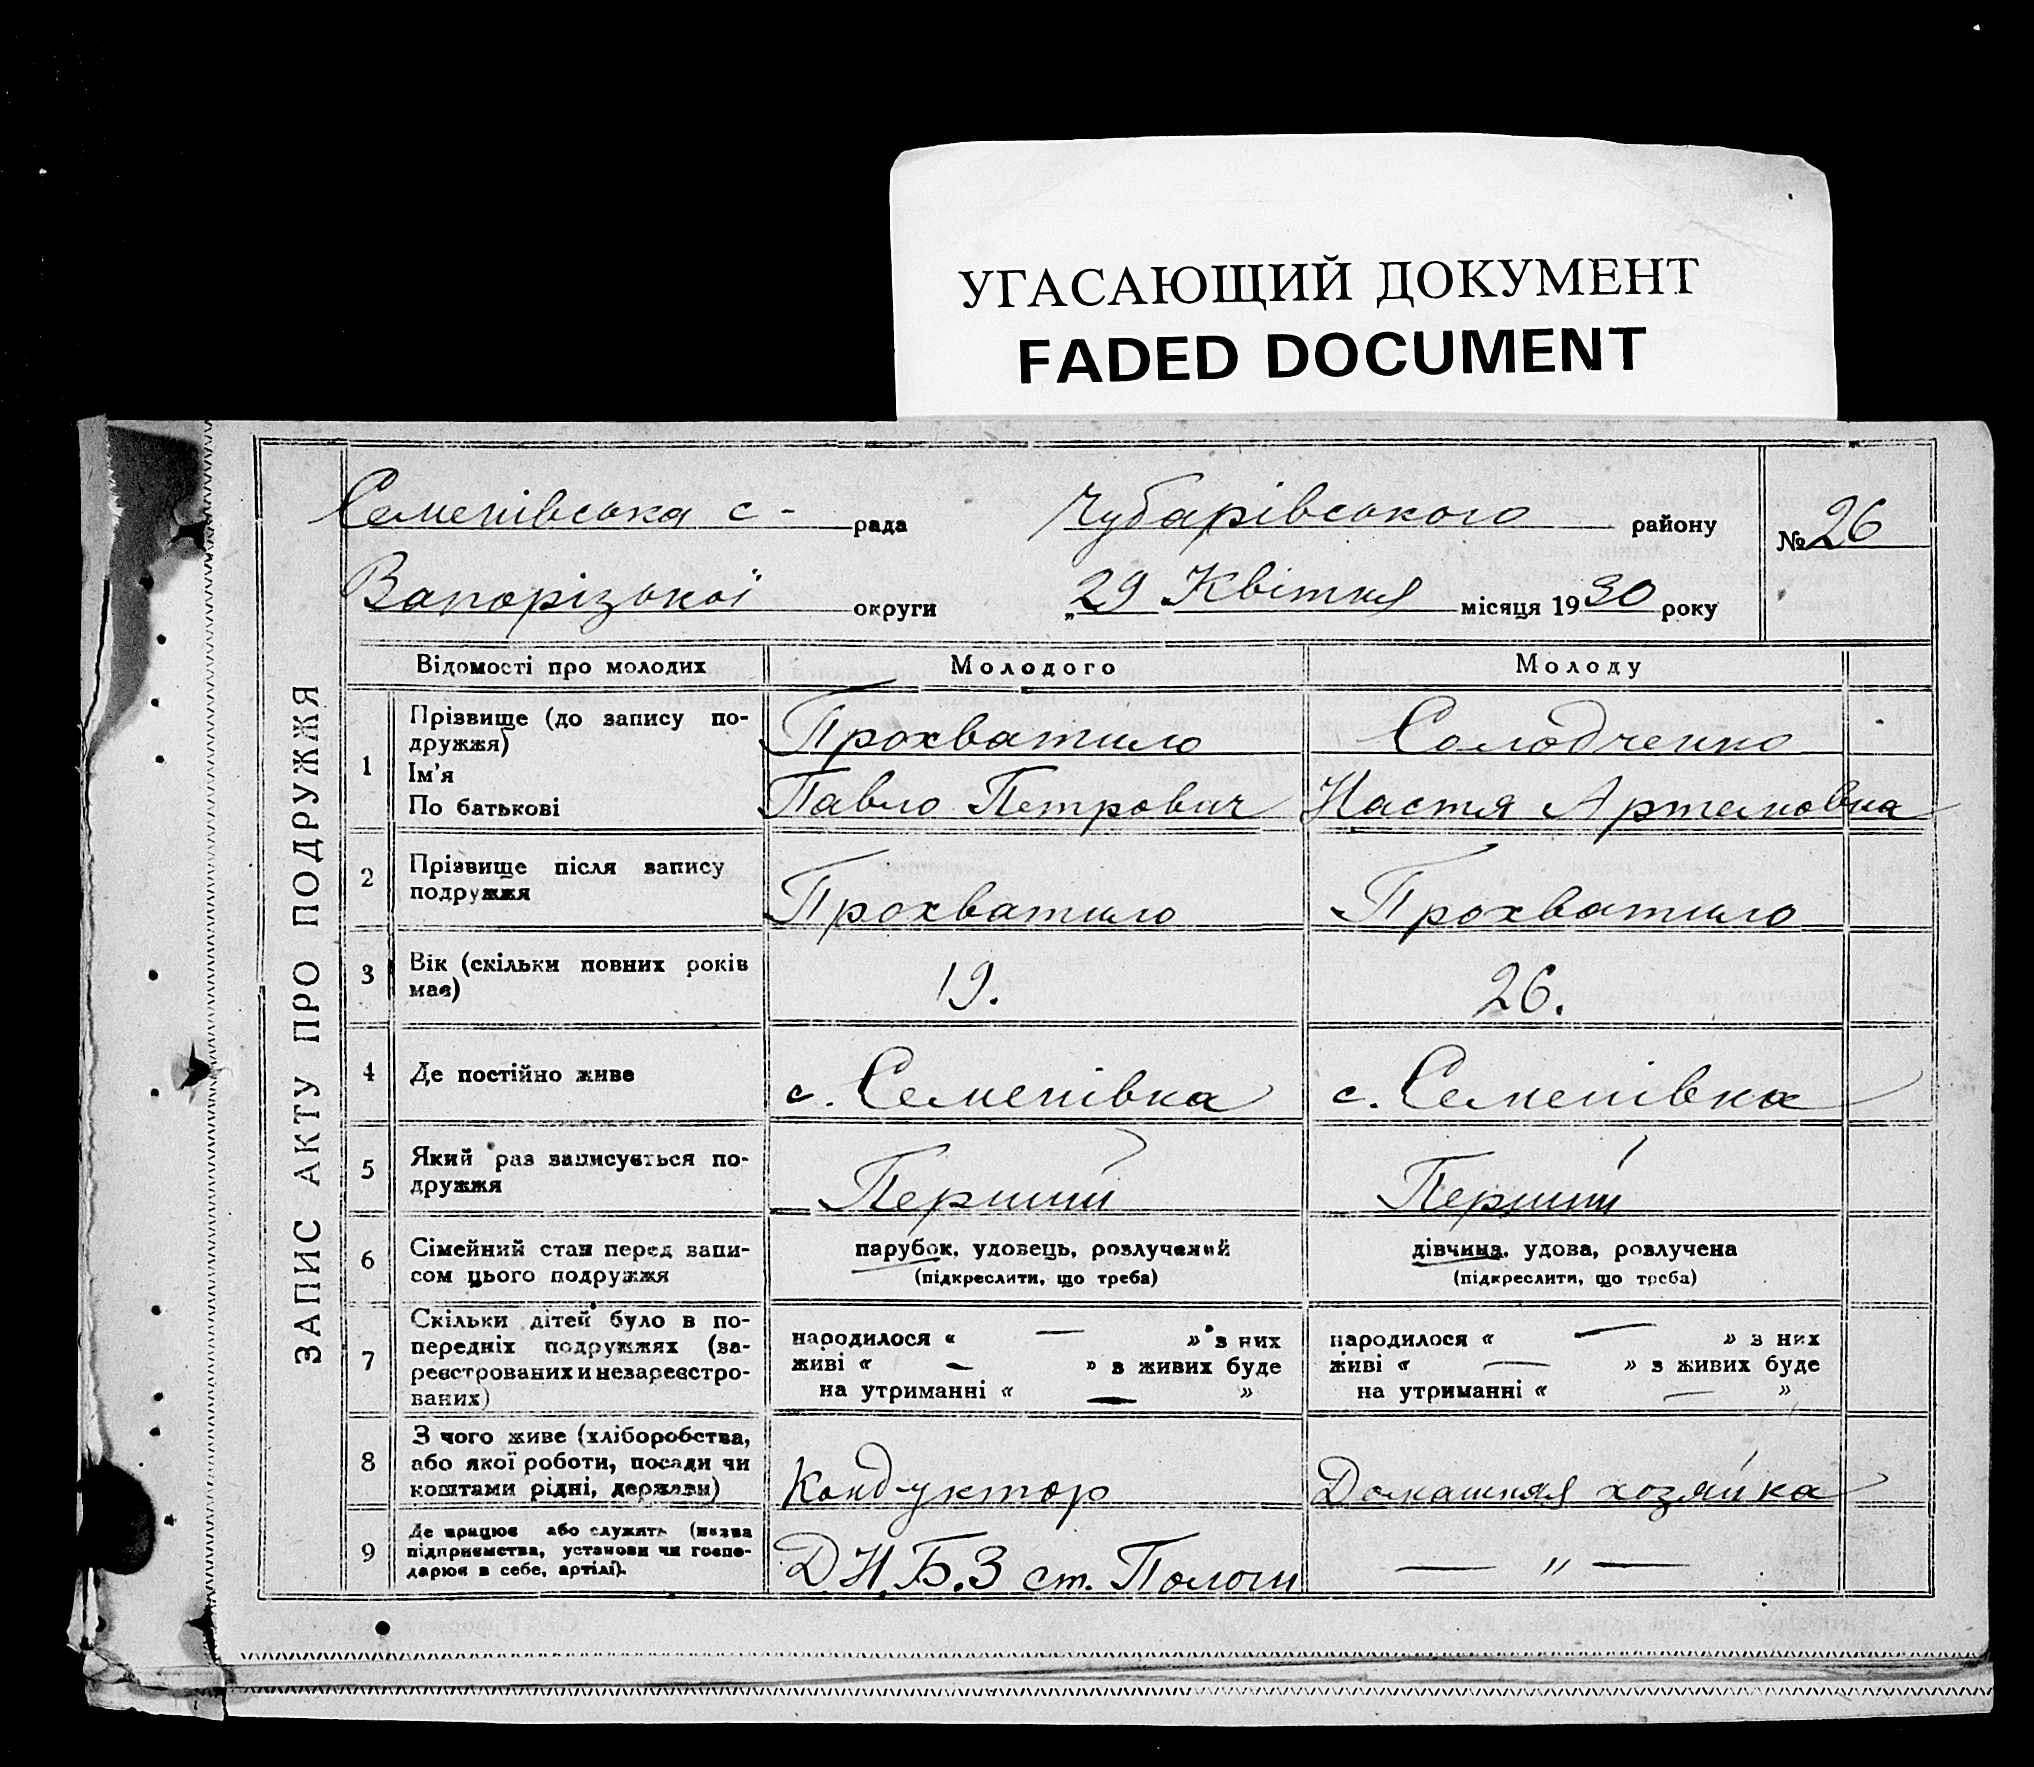 УГАСАЮЩИЙ ДОКУМЕНТ
FADED DOCUMENT
ЗАПИС АКТУ ПРО ПОДРУЖЖЯ
Семенівська с - рада Чубарівського району № 26
Запорізької округи „29 Квітня місяця 1930 року
Відомості про молодих Молодого Молоду
1 Прізвище (до запису по-
дружжя) Прохватило Солодченко
Ім'я
По батькові Павло Петрович Настя Артемовна
2 Прізвище після запису
подружжя Прохватило Прохватило
3 Вік (скільки повних років
має) 19. 26.
4 Де постійно живе с. Семенівка с. Семенівка
5 Який раз записується по-
дружжя Перший Перший
6 Сімейний стан перед запи-
сом цього подружжя
парубок, удовець, розлучений
(підкреслити, що треба)
дівчина, удова, розлучена
(підкреслити, що треба)
7 Скільки дітей було в по-
передніх подружжях (за-
реєстрованих и незареєстро-
ваних)
народилося « — » з них
живі « — » з живих буде
на утриманні « — »
народилося « — » з них
живі « — » з живих буде
на утриманні « — »
8 З чого живе (хліборобства,
або якої роботи, посади чи
коштами рідні, держави)
Кондуктор Домашняя хозяйка
9 Де працює або служить (назва
підприємства, установи чи госпо-
дарює в себе, артілі).
Д.Н.Б.З ст. Пологи — „ —